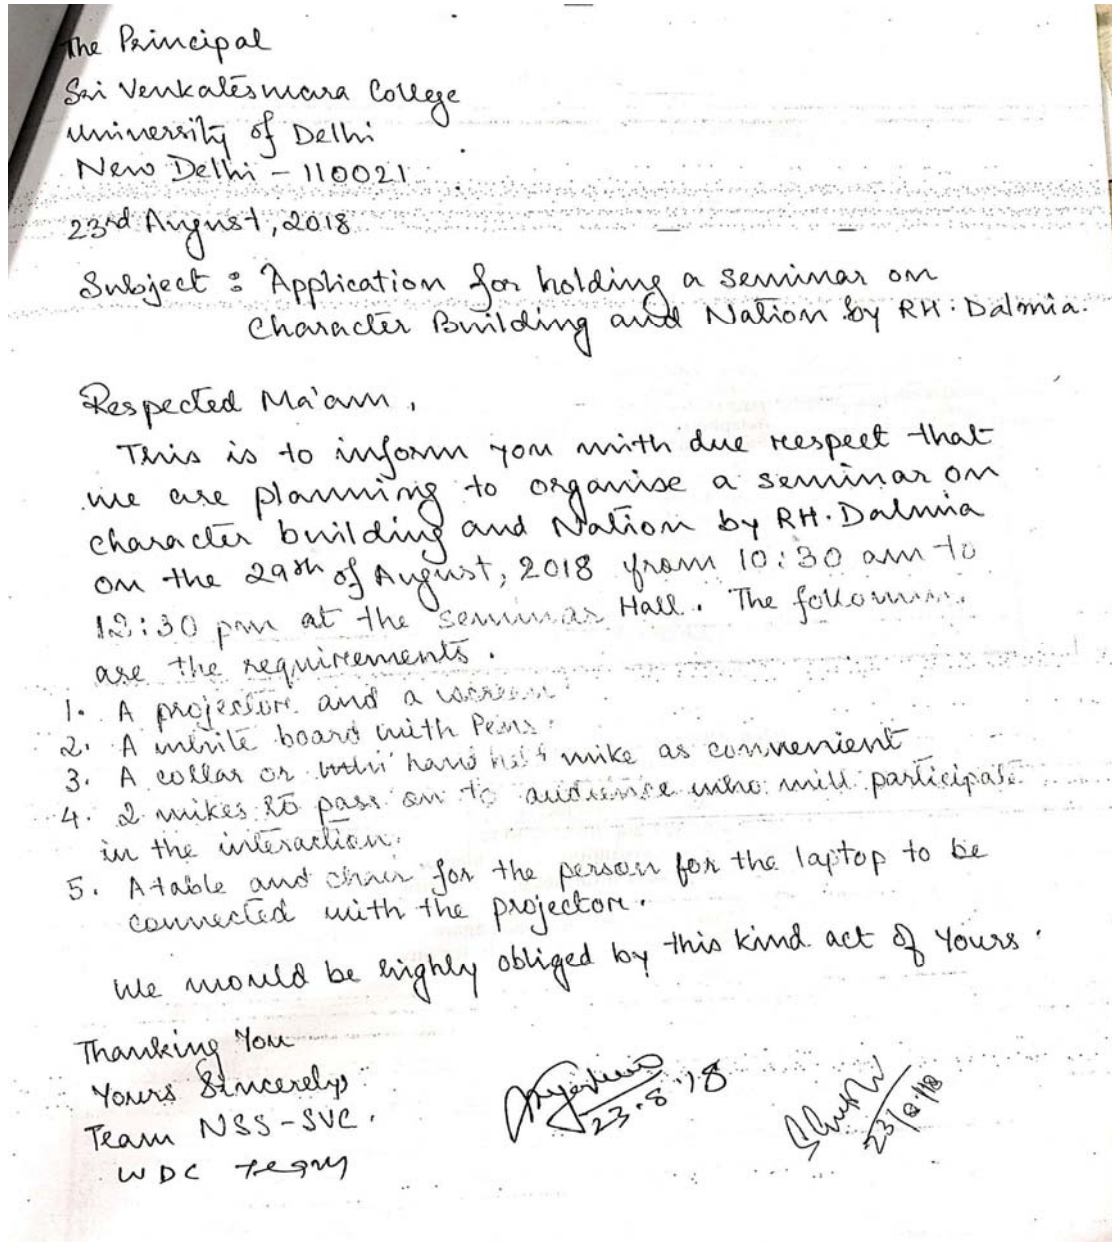 The Principal
Sri Venkateswara College
University of Delhi
New Delhi - 110021
23rd August, 2018
Subject : Application for holding a seminar on
Character Building and Nation by RH. Dalmia.
Respected Ma'am,
This is to inform you with due respect that
we are planning to organise a seminar on
character building and Nation by RH. Dalmia
on the 29th of August, 2018 from 10:30 am to
12:30 pm at the seminar Hall. The following
are the requirements.
1. A projector and a screen
2. A white board with Pens.
3. A collar or hand held mike as convenient
4. 2 mikes to pass on to audience who will participate
in the interaction.
5. A table and chair for the person for the laptop to be
connected with the projector.
We would be highly obliged by this kind act of Yours.
Thanking You
Yours Sincerely
Team NSS-SVC.
WDC Team
23.8.'18
23/8/18